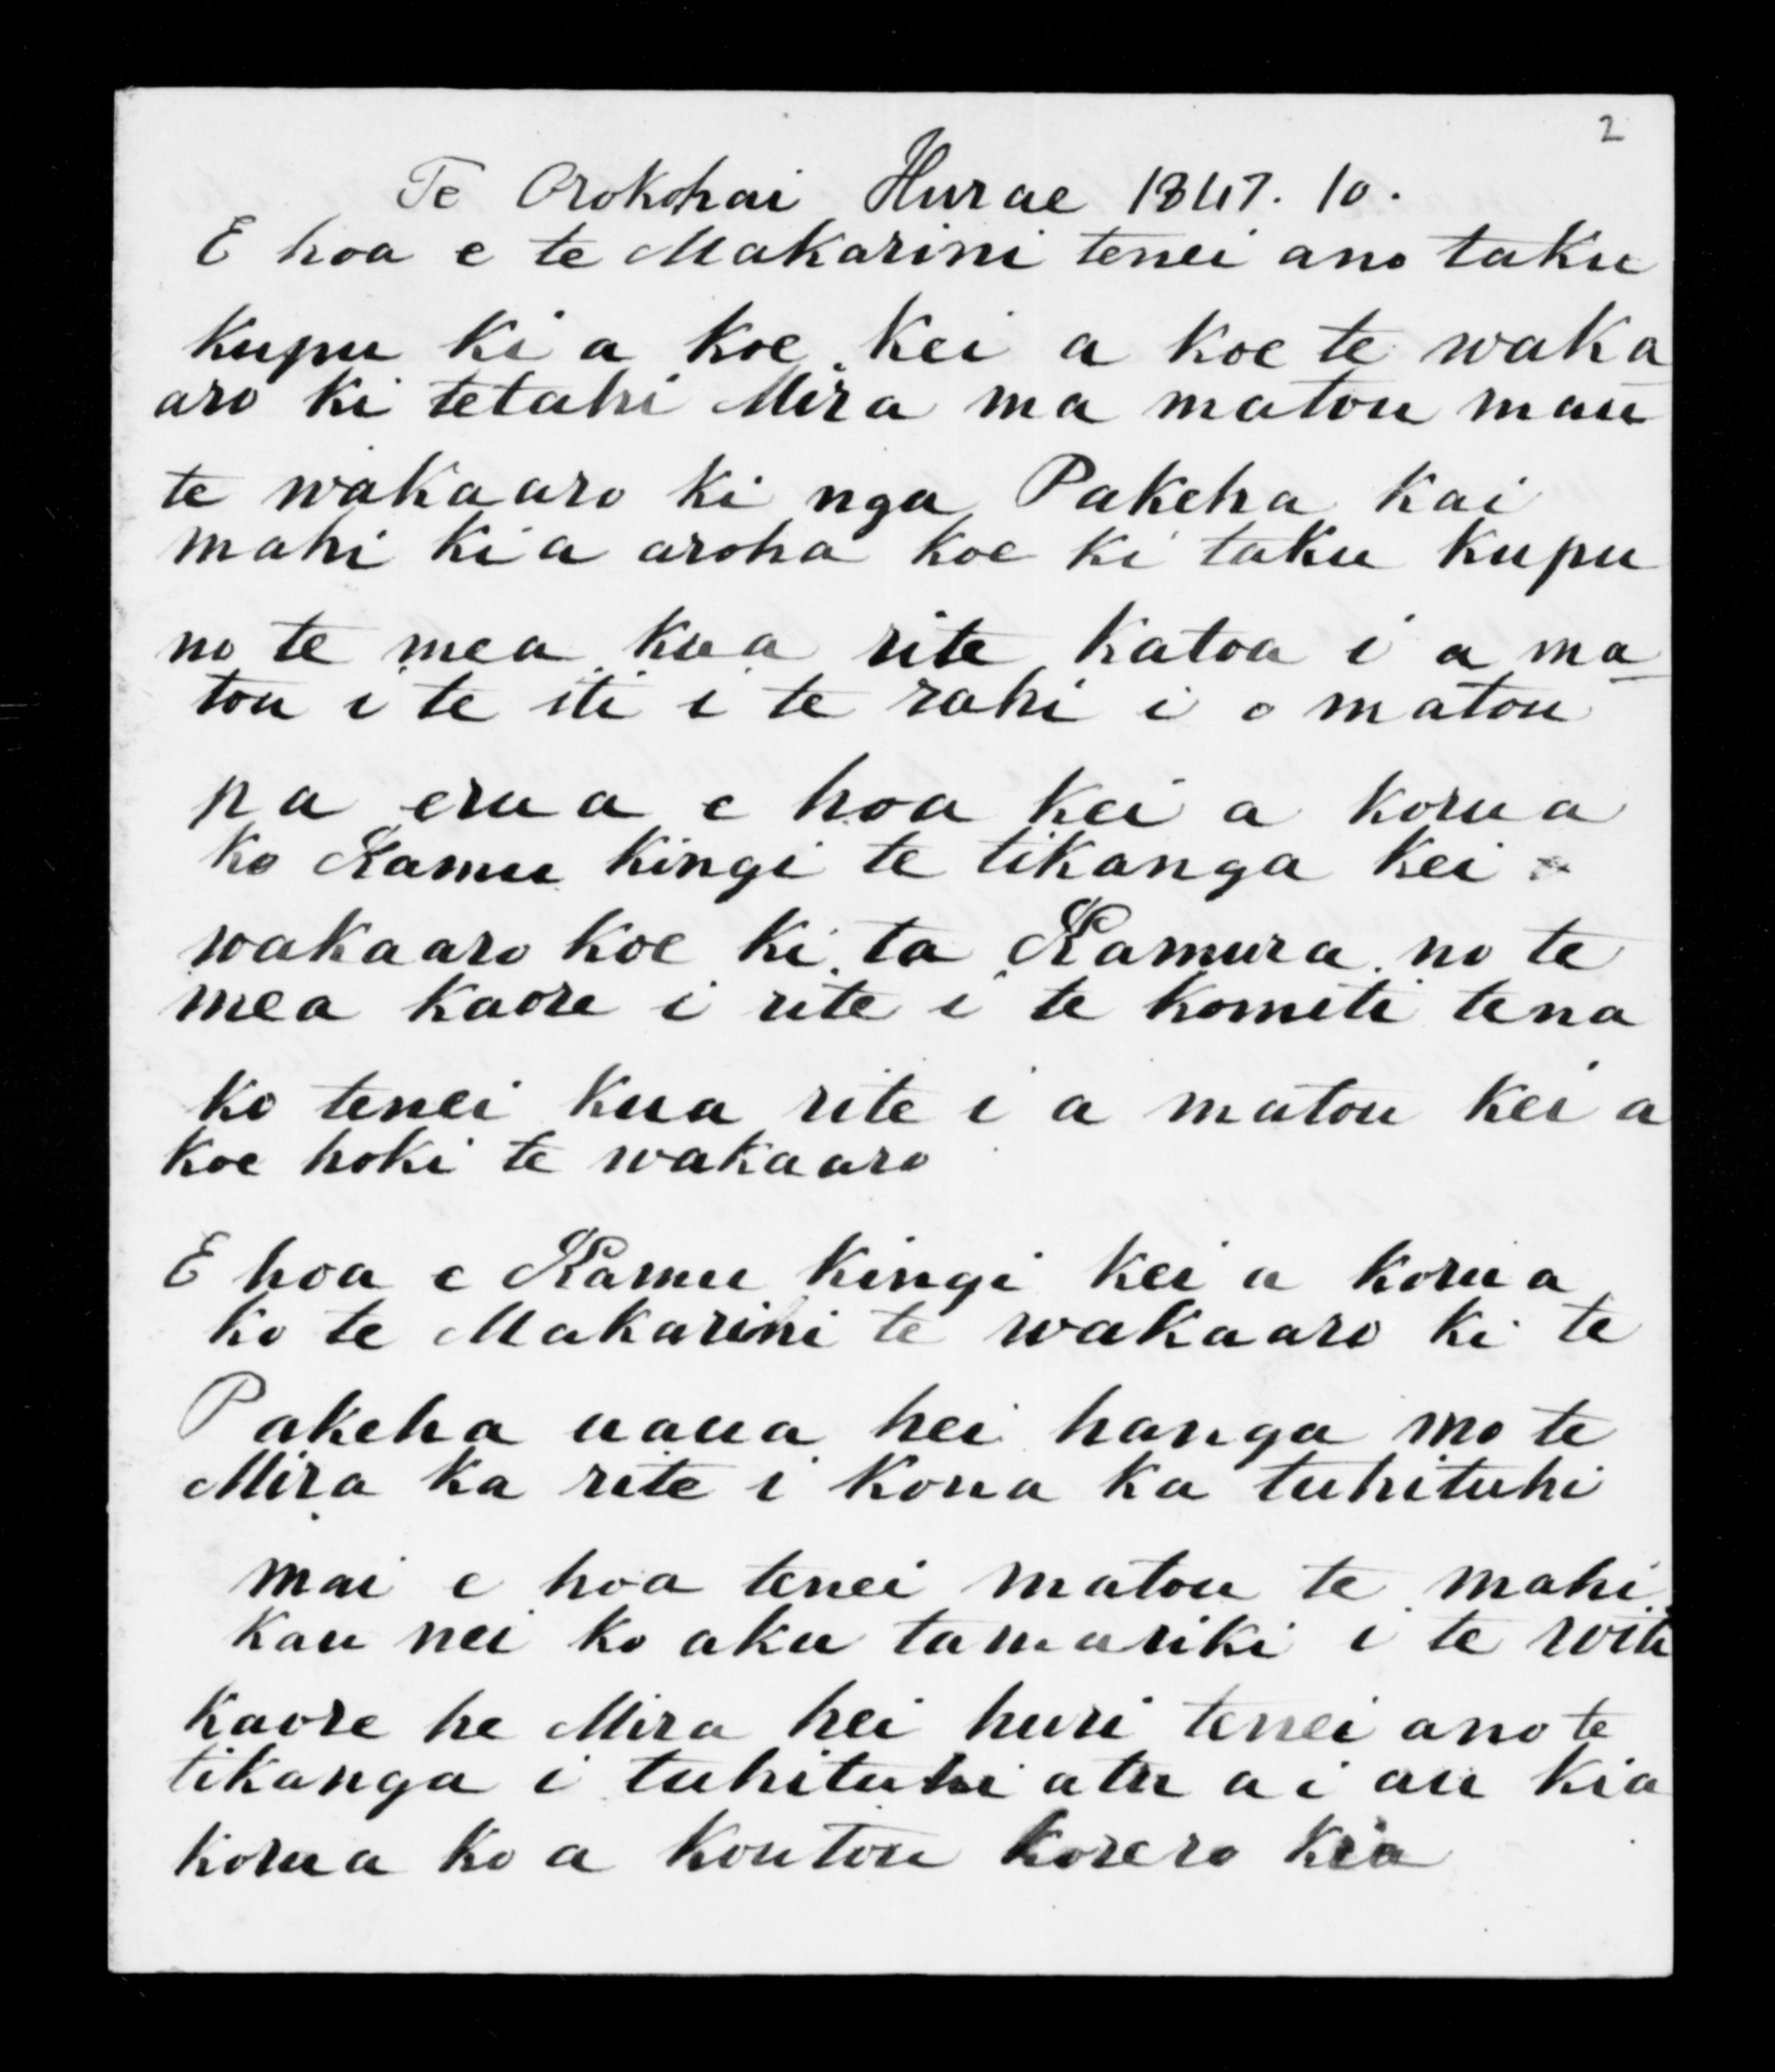 2
Te Orokohai Hurae 1847. 10.
E hoa e te Makarini tenei ano taku
kupu ki a koe, kei a koe te waka
aro ki tetahi Mira ma matou mau
te wakaaro ki nga Pakeha kai
mahi kia aroha koe ki taku kupu
no te mea kua rite katoa i a ma
tou i te iti i te rahi i o matou
pa erua e hoa kei a korua
ko Kamu kingi te tikanga kei
wakaaro koe ki ta Kamura no te
mea kaore i rite i te komiti tena
ko tenei kua rite i a matou kei a
koe hoki te wakaaro
E hoa e Kamu kingi kei a korua
ko te Makarini te wakaaro ki te
Pakeha uaua hei hanga mo te
Mira ka rite i kona ka tuhituhi
mai e hoa tenei matou te mahi
kau nei ko aku tamariki i te witi
kaore he Mira hei huri tenei ano te
tikanga i tuhituhi atu ai au kia
korua ko a koutou korero kia